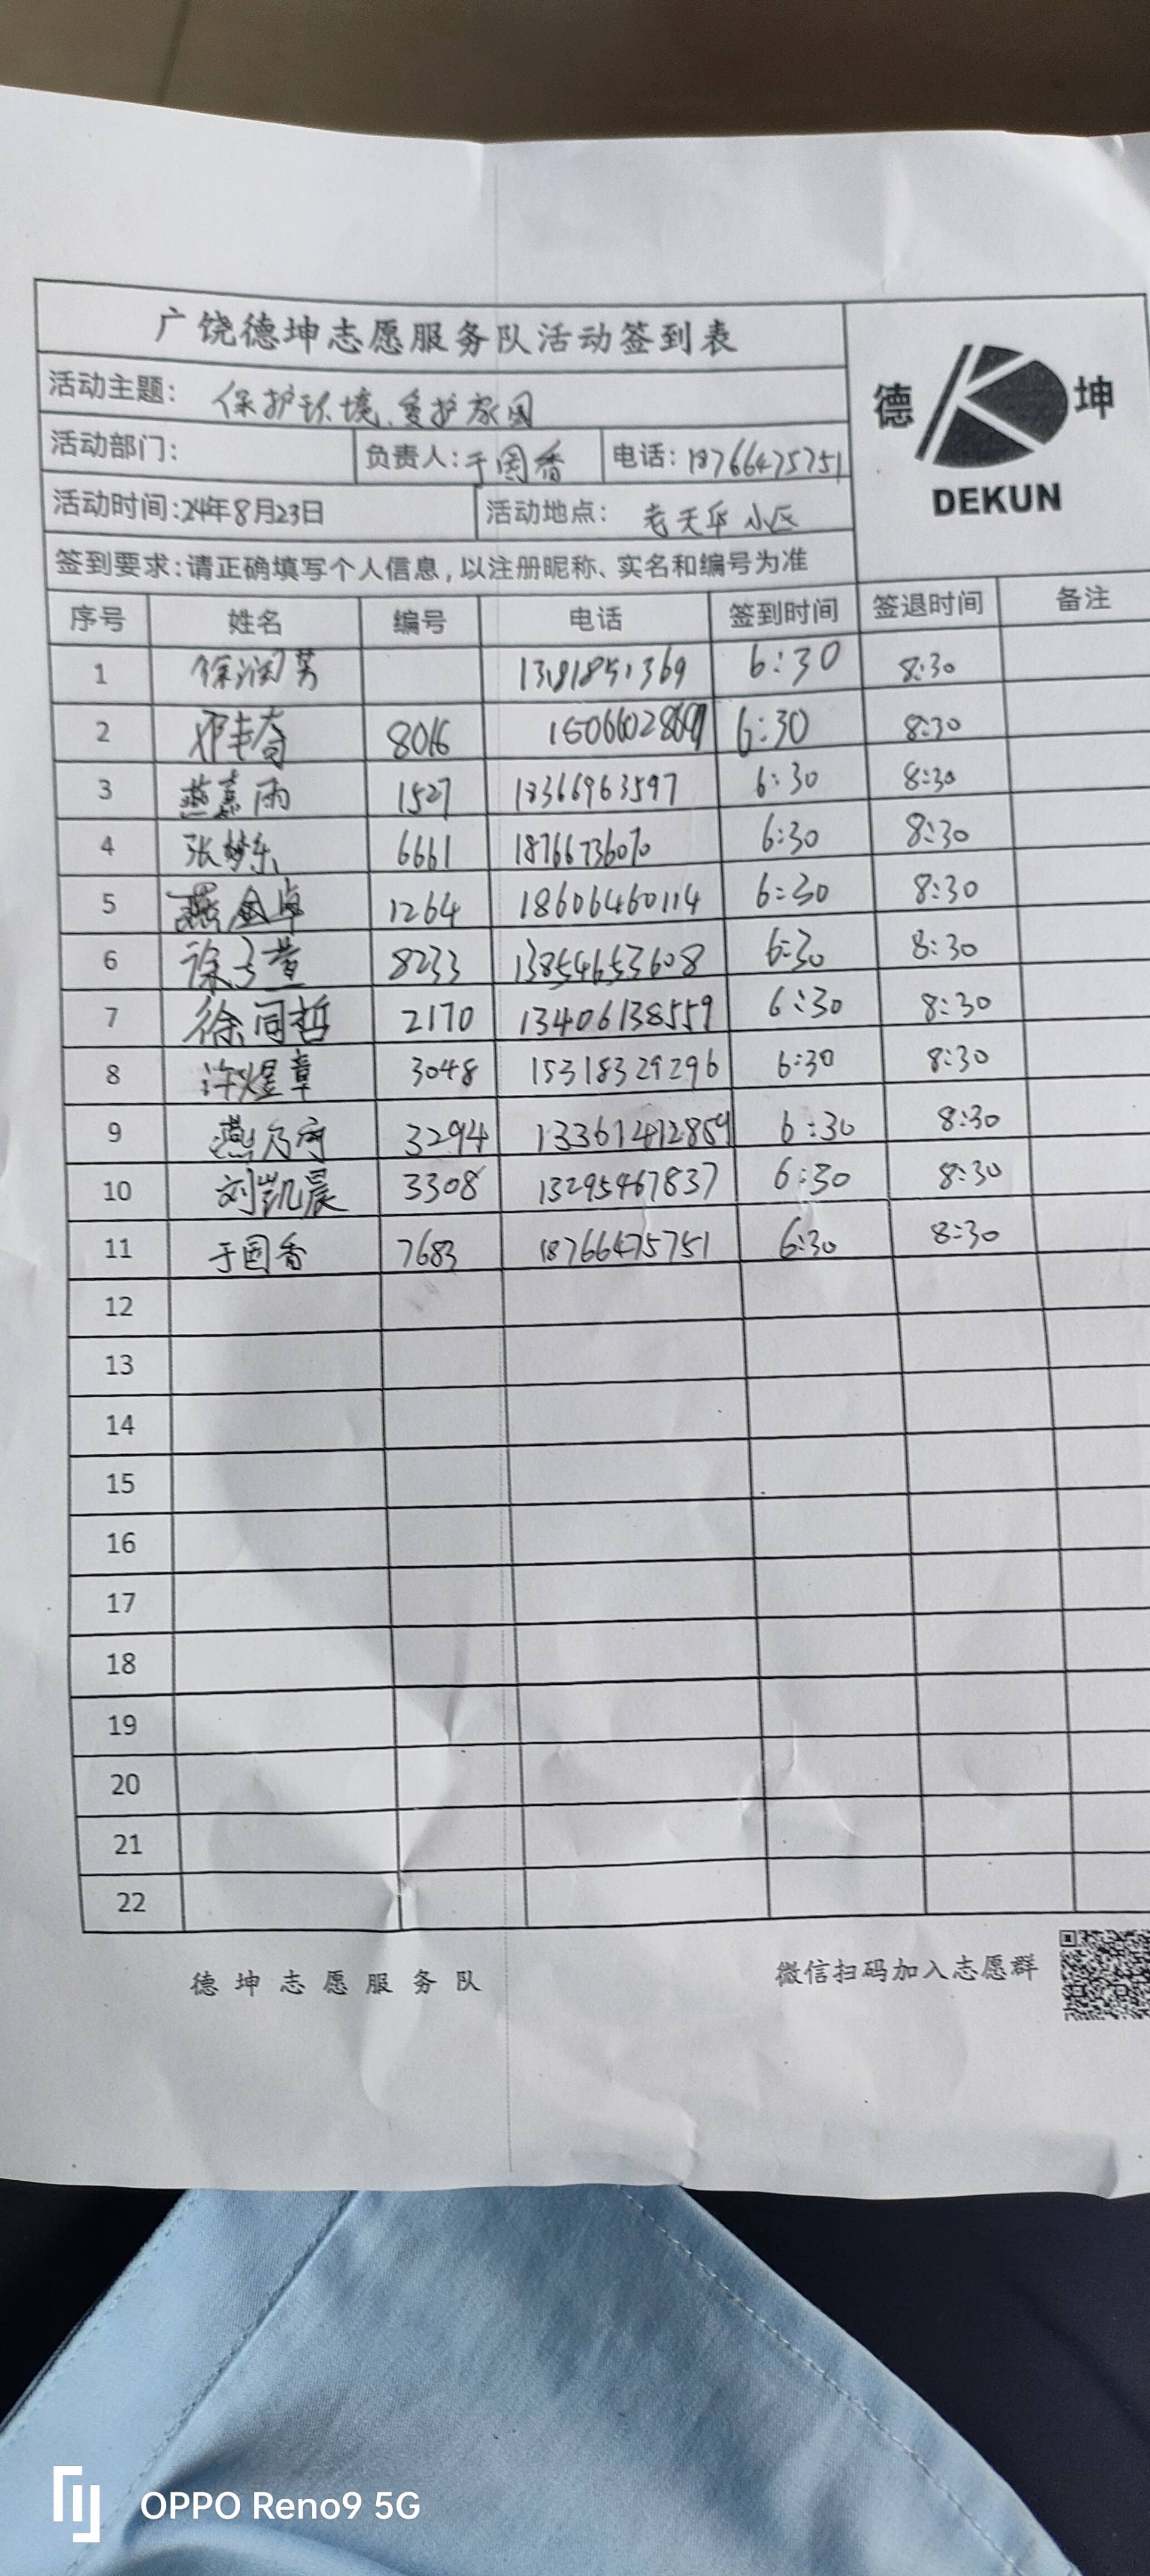 广饶德坤志愿服务队活动签到表
活动主题: 保护环境、爱护家园
德 坤
DEKUN
活动部门: 负责人: 于国香 电话: 18766475751
活动时间:24年8月23日 活动地点: 老天华小区
签到要求:请正确填写个人信息,以注册昵称、实名和编号为准
序号 姓名 编号 电话 签到时间 签退时间 备注
1 6:30 8:30
2 邓丰奇 8016 6:30 8:30
3 燕嘉雨 1527 18366963597 6:30 8:30
4 张梦乐 6661 18766736070 6:30 8:30
5 燕金卓 1264 18606460114 6:30 8:30
6 徐子萱 8233 13854653608 6:30 8:30
7 徐同哲 2170 13406138559 6:30 8:30
8 许煜章 3048 15318329296 6:30 8:30
9 3294 13361412859 6:30 8:30
10 刘凯晨 3308 13295467837 6:30 8:30
11 于国香 7683 18766475751 6:30 8:30
12
13
14
15
16
17
18
19
20
21
22
德坤志愿服务队 微信扫码加入志愿群
OPPO Reno9 5G